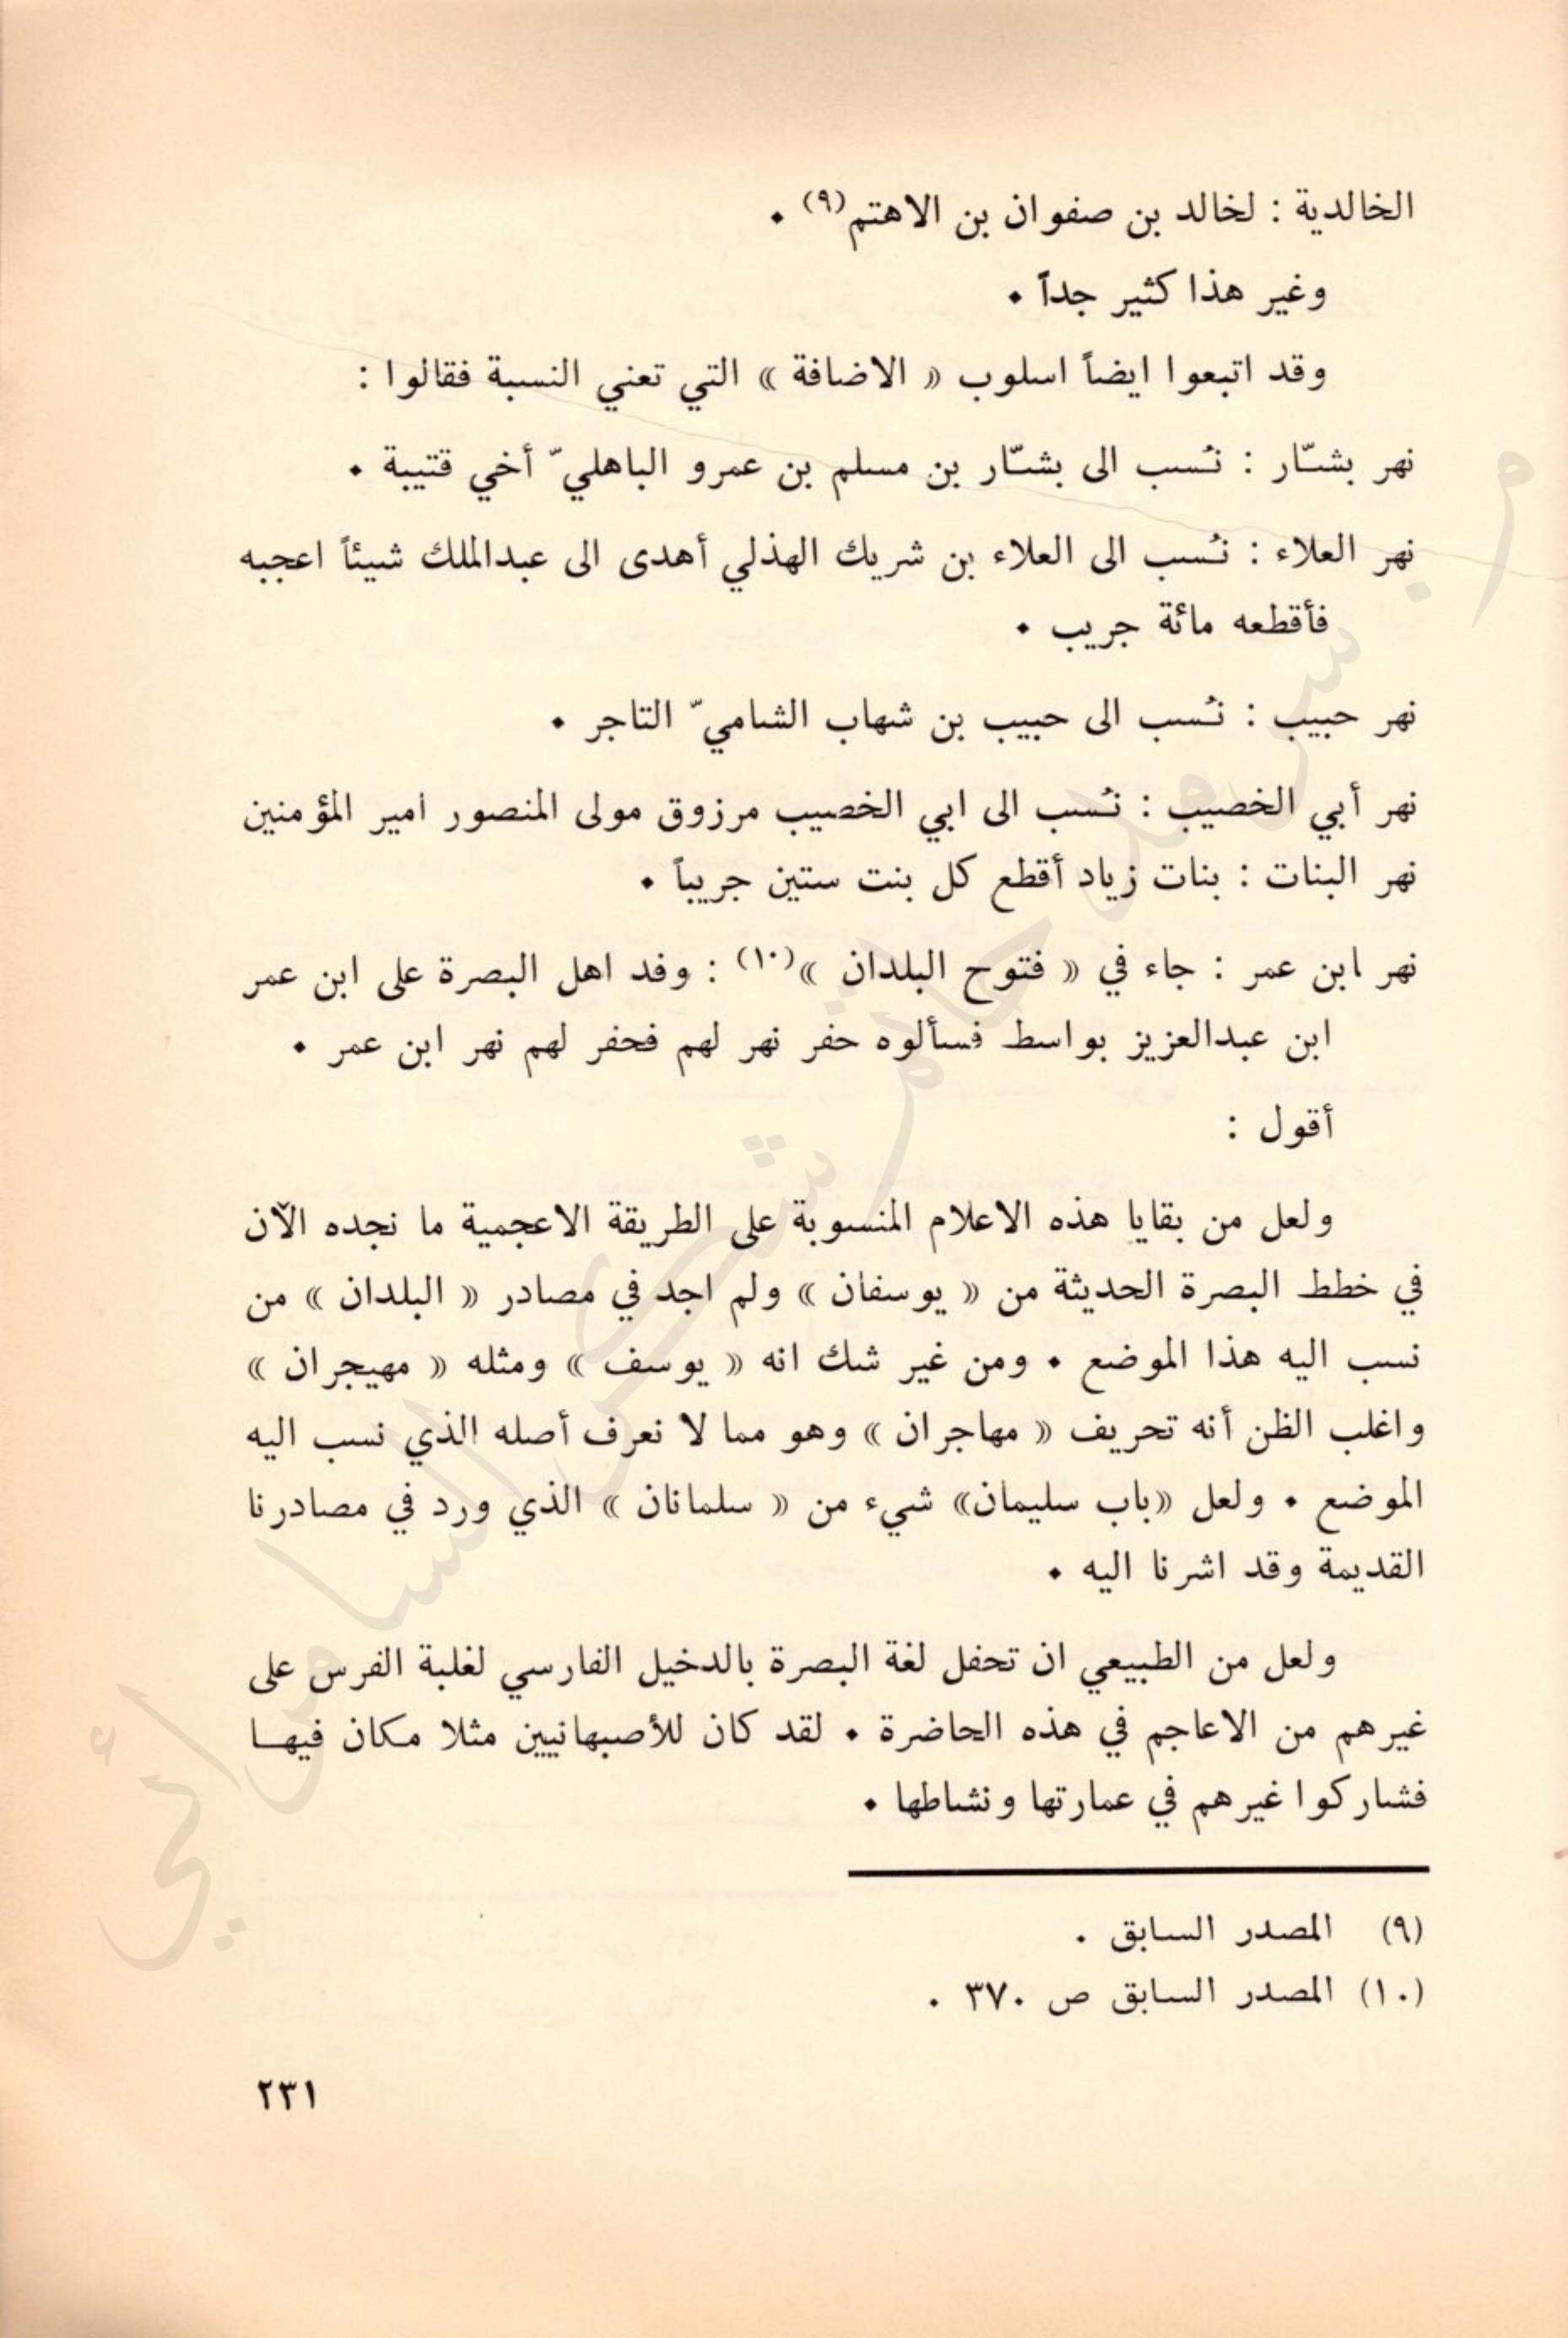 الخالدية : لخالد بن صفوان بن الاهتم(٩) ٠
وغير هذا كثير جداً ٠
وقد اتبعوا ايضاً اسلوب « الاضافة » التي تعني النسبة فقالوا :
نهر بشّار : نُسب الى بشّار بن مسلم بن عمرو الباهليّ أخي قتيبة ٠
نهر العلاء : نُسب الى العلاء بن شريك الهذلي أهدى الى عبدالملك شيئاً اعجبه
فأقطعه مائة جريب ٠
نهر حبيب : نُسب الى حبيب بن شهاب الشاميّ التاجر ٠
نهر أبي الخصيب : نُسب الى ابي الخصيب مرزوق مولى المنصور امير المؤمنين
نهر البنات : بنات زياد أقطع كل بنت ستين جريباً ٠
نهر ابن عمر : جاء في « فتوح البلدان »(١٠) : وفد اهل البصرة على ابن عمر
ابن عبدالعزيز بواسط فسألوه حفر نهر لهم فحفر لهم نهر ابن عمر ٠
أقول :
ولعل من بقايا هذه الاعلام المنسوبة على الطريقة الاعجمية ما نجده الآن
في خطط البصرة الحديثة من « يوسفان » ولم اجد في مصادر « البلدان » من
نسب اليه هذا الموضع ٠ ومن غير شك انه « يوسف » ومثله « مهيجران »
واغلب الظن أنه تحريف « مهاجران » وهو مما لا نعرف أصله الذي نسب اليه
الموضع ٠ ولعل «باب سليمان» شيء من « سلمانان » الذي ورد في مصادرنا
القديمة وقد اشرنا اليه ٠
ولعل من الطبيعي ان تحفل لغة البصرة بالدخيل الفارسي لغلبة الفرس على
غيرهم من الاعاجم في هذه الحاضرة ٠ لقد كان للأصبهانيين مثلا مكان فيها
فشاركوا غيرهم في عمارتها ونشاطها ٠
(٩) المصدر السابق .
(١٠) المصدر السابق ص ٣٧٠ .
٢٣١